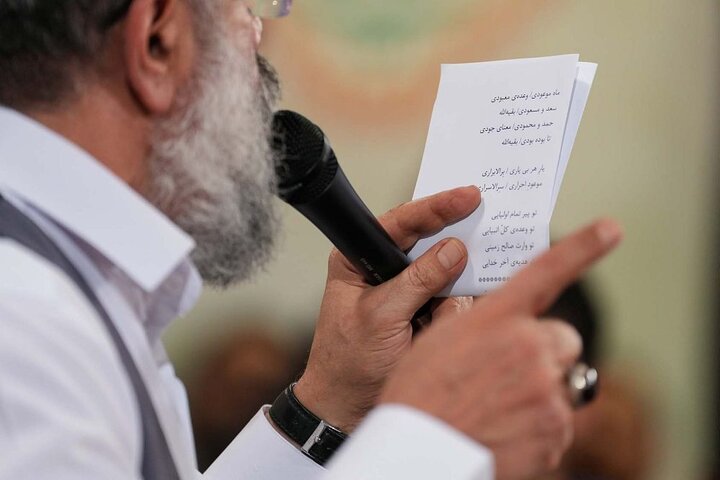 ماه موعودی/ وعده‌ی معبودی
سعد و مسعودی/ بقیه‌الله
حمد و محمودی/ معنای جودی
تا بوده بودی/ بقیه‌الله
یار هر بی یاری / برالابراری
موعود احراری / سرالاسراری
تو پیر تمام اولیایی
تو وعده‌ی کل انبیایی
تو وارث صالح زمینی
هدیه‌ی آخر خدایی